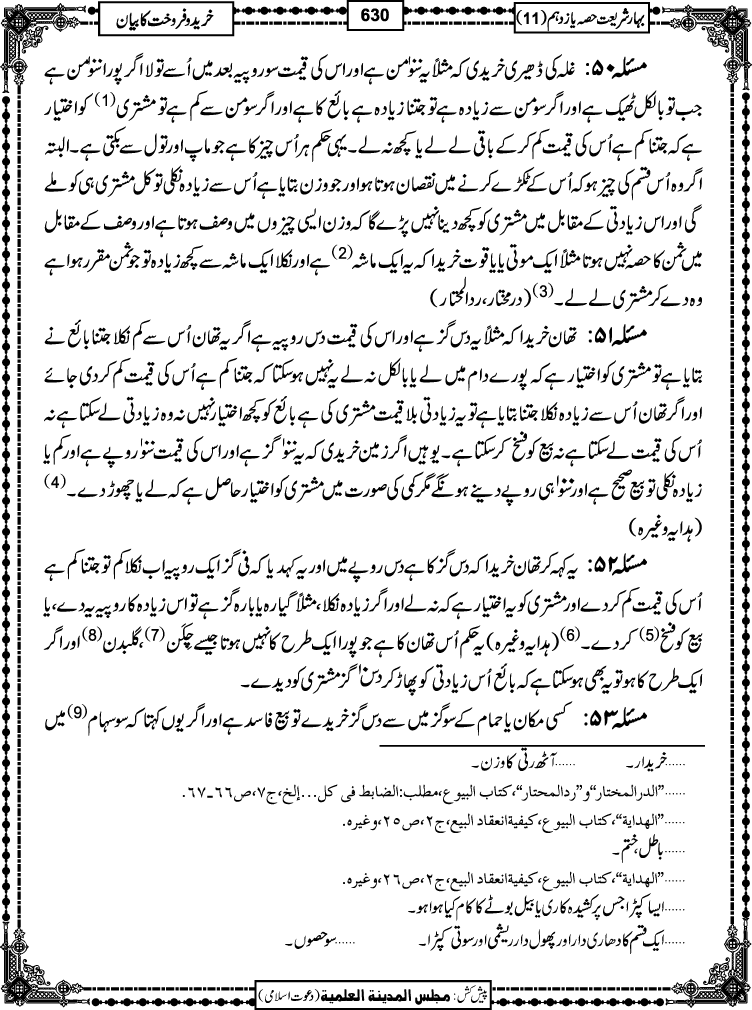 بہارِ شریعت حصہ یازدہم (11)
630
خرید و فروخت کا بیان
مسئلہ ۵۰: غلہ کی ڈھیری خریدی کہ مثلاً یہ سو ۱۰۰ من ہے اور اس کی قیمت سو روپیہ بعد میں اُسے تولا اگر پورا سو ۱۰۰ من ہے
جب تو بالکل ٹھیک ہے اور اگر سو من سے زیادہ ہے تو جتنا زیادہ ہے بائع کا ہے اور اگر سو من سے کم ہے تو مشتری (1) کو اختیار
ہے کہ جتنا کم ہے اُس کی قیمت کم کر کے باقی لے لے یا کچھ نہ لے۔ یہی حکم ہر اُس چیز کا ہے جو ماپ اور تول سے بکتی ہے۔ البتہ
اگر وہ اُس قسم کی چیز ہو کہ اُس کے ٹکڑے کرنے میں نقصان ہوتا ہو اور جو وزن بتایا ہے اُس سے زیادہ نکلی تو کل مشتری ہی کو ملے
گی اور اس زیادتی کے مقابل میں مشتری کو کچھ دینا نہیں پڑے گا کہ وزن ایسی چیزوں میں وصف ہوتا ہے اور وصف کے مقابل
میں ثمن کا حصہ نہیں ہوتا مثلاً ایک موتی یا یاقوت خریدا کہ یہ ایک ماشہ (2) ہے اور نکلا ایک ماشہ سے کچھ زیادہ تو جو ثمن مقرر ہوا ہے
وہ دے کر مشتری لے لے۔ (3) (درمختار، ردالمحتار)
مسئلہ ۵۱: تھان خریدا کہ مثلاً یہ دس گز ہے اور اس کی قیمت دس روپیہ ہے اگر یہ تھان اُس سے کم نکلا جتنا بائع نے
بتایا ہے تو مشتری کو اختیار ہے کہ پورے دام میں لے یا بالکل نہ لے یہ نہیں ہوسکتا کہ جتنا کم ہے اُس کی قیمت کم کر دی جائے
اور اگر تھان اُس سے زیادہ نکلا جتنا بتایا ہے تو یہ زیادتی بلا قیمت مشتری کی ہے بائع کو کچھ اختیار نہیں نہ وہ زیادتی لے سکتا ہے نہ
اُس کی قیمت لے سکتا ہے نہ بیع کو فسخ کر سکتا ہے۔ یوہیں اگر زمین خریدی کہ یہ سو ۱۰۰ گز ہے اور اس کی قیمت سو ۱۰۰ روپے ہے اور کم یا
زیادہ نکلی تو بیع صحیح ہے اور سو ۱۰۰ ہی روپے دینے ہونگے مگر کمی کی صورت میں مشتری کو اختیار حاصل ہے کہ لے یا چھوڑ دے۔ (4)
(ہدایہ وغیرہ)
مسئلہ ۵۲: یہ کہہ کر تھان خریدا کہ دس گز کا ہے دس روپے میں اور یہ کہہ دیا کہ فی گز ایک روپیہ اب نکلا کم تو جتنا کم ہے
اُس کی قیمت کم کر دے اور مشتری کو یہ اختیار ہے کہ نہ لے اور اگر زیادہ نکلا، مثلاً گیارہ یا بارہ گز ہے تو اس زیادہ کا روپیہ یہ دے، یا
بیع کو فسخ (5) کر دے۔ (6) (ہدایہ وغیرہ) یہ حکم اُس تھان کا ہے جو پورا ایک طرح کا نہیں ہوتا جیسے چکن (7)، گلبدن (8) اور اگر
ایک طرح کا ہو تو یہ بھی ہوسکتا ہے کہ بائع اُس زیادتی کو پھاڑ کر دس ۱۰ گز مشتری کو دیدے۔
مسئلہ ۵۳: کسی مکان یا حمام کے سو گز میں سے دس گز خریدے تو بیع فاسد ہے اور اگر یوں کہتا کہ سو سہام (9) میں
......خریدار۔ ......آٹھ رتی کا وزن۔
......"الدرالمختار" و"ردالمحتار"، کتاب البیوع، مطلب: الضابط فی کل...إلخ، ج۷، ص۶۶۔۶۷.
......"الهداية"، کتاب البیوع، کیفیة انعقاد البیع، ج۲، ص۲۵، وغیرہ.
......باطل، ختم۔
......"الهداية"، کتاب البیوع، کیفیة انعقاد البیع، ج۲، ص۲۶، وغیرہ.
......ایسا کپڑا جس پر کشیدہ کاری یا بیل بوٹے کا کام کیا ہوا ہو۔
......ایک قسم کا دھاری دار اور پھول دار ریشمی اور سوتی کپڑا۔ ......سو حصوں۔
پیش کش: مجلس المدینۃ العلمیۃ (دعوت اسلامی)